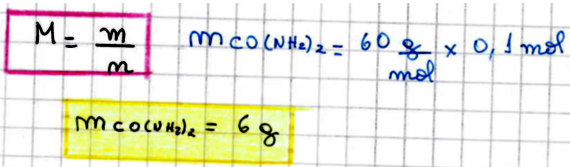 M = m/n
m CO(NH₂)₂ = 60 g/mol × 0,1 mol
m CO(NH₂)₂ = 6 g